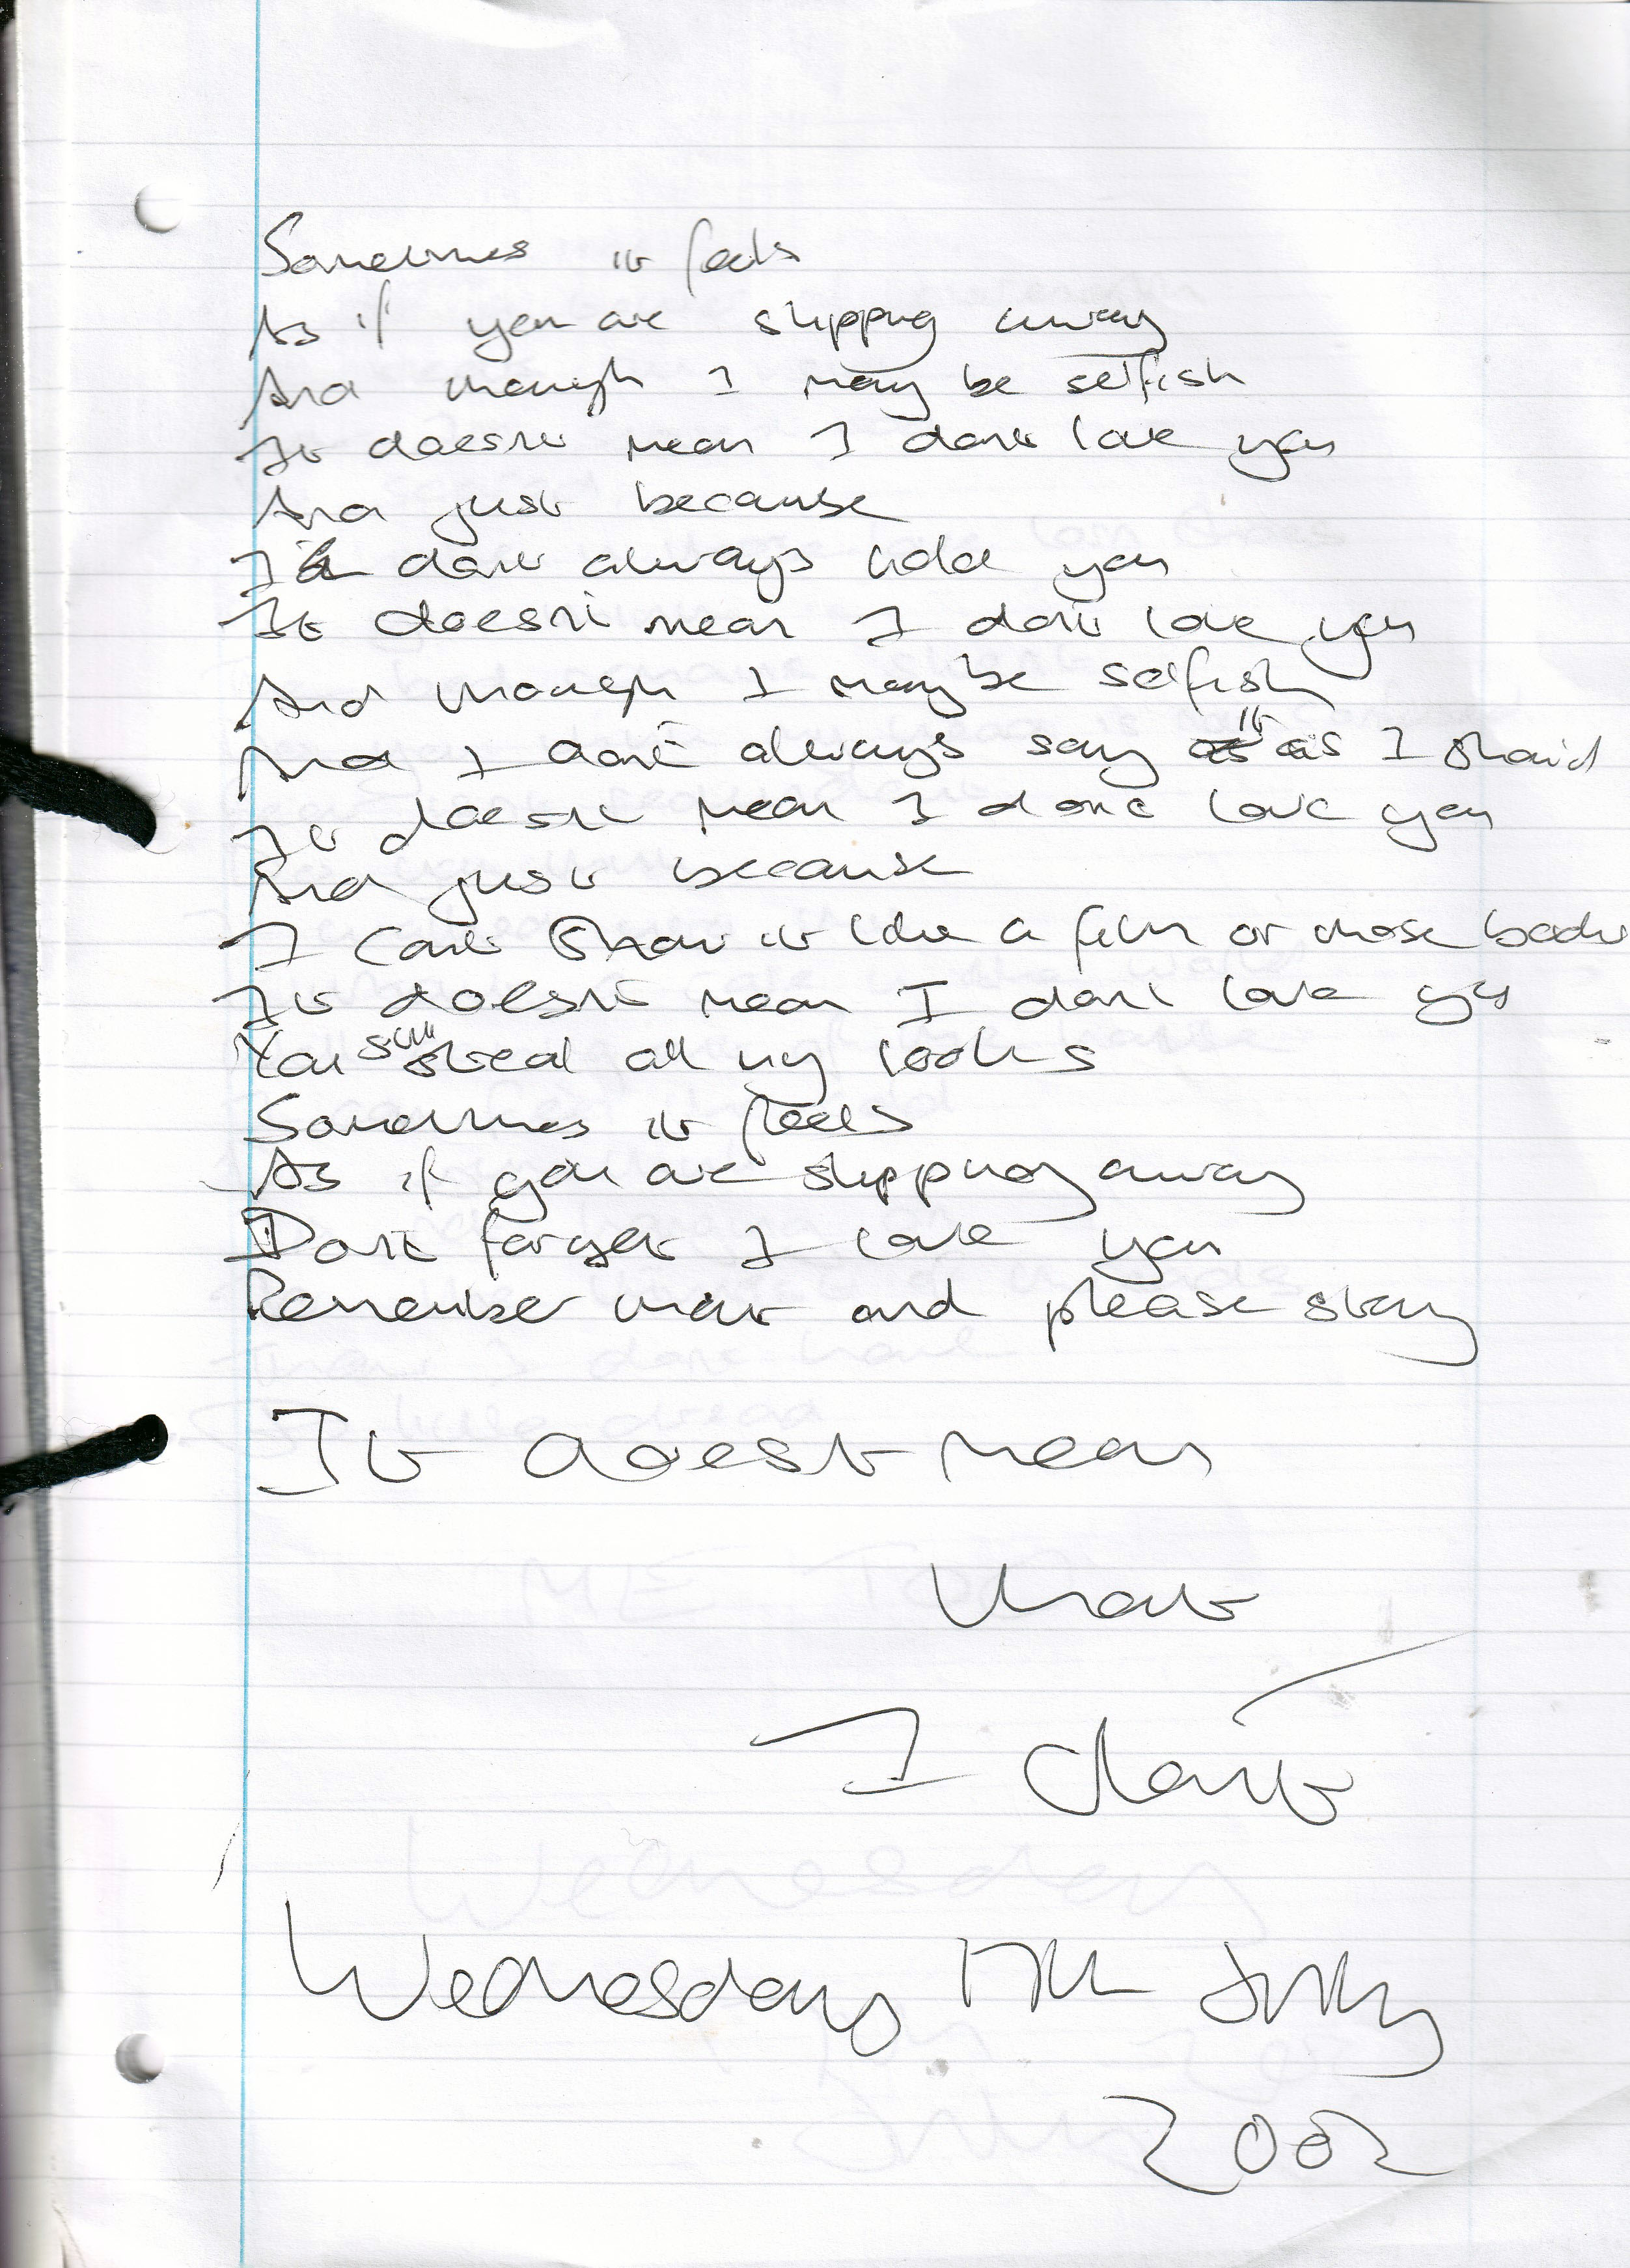 Sometimes it feels
As if you are slipping away
And though I may be selfish
It doesn't mean I don't love you
And just because
I don't always hold you
It doesn't mean I don't love you
And though I may be selfish
And I don't always say it as I should
It doesn't mean I don't love you
And just because
I can't show it like a film or those books
It doesn't mean I don't love you
You still steal all my looks
Sometimes it feels
As if you are slipping away
Don't forget I love you
Remember that and please stay
It doest mean
that
I don't
Wednesday 17th July
2002